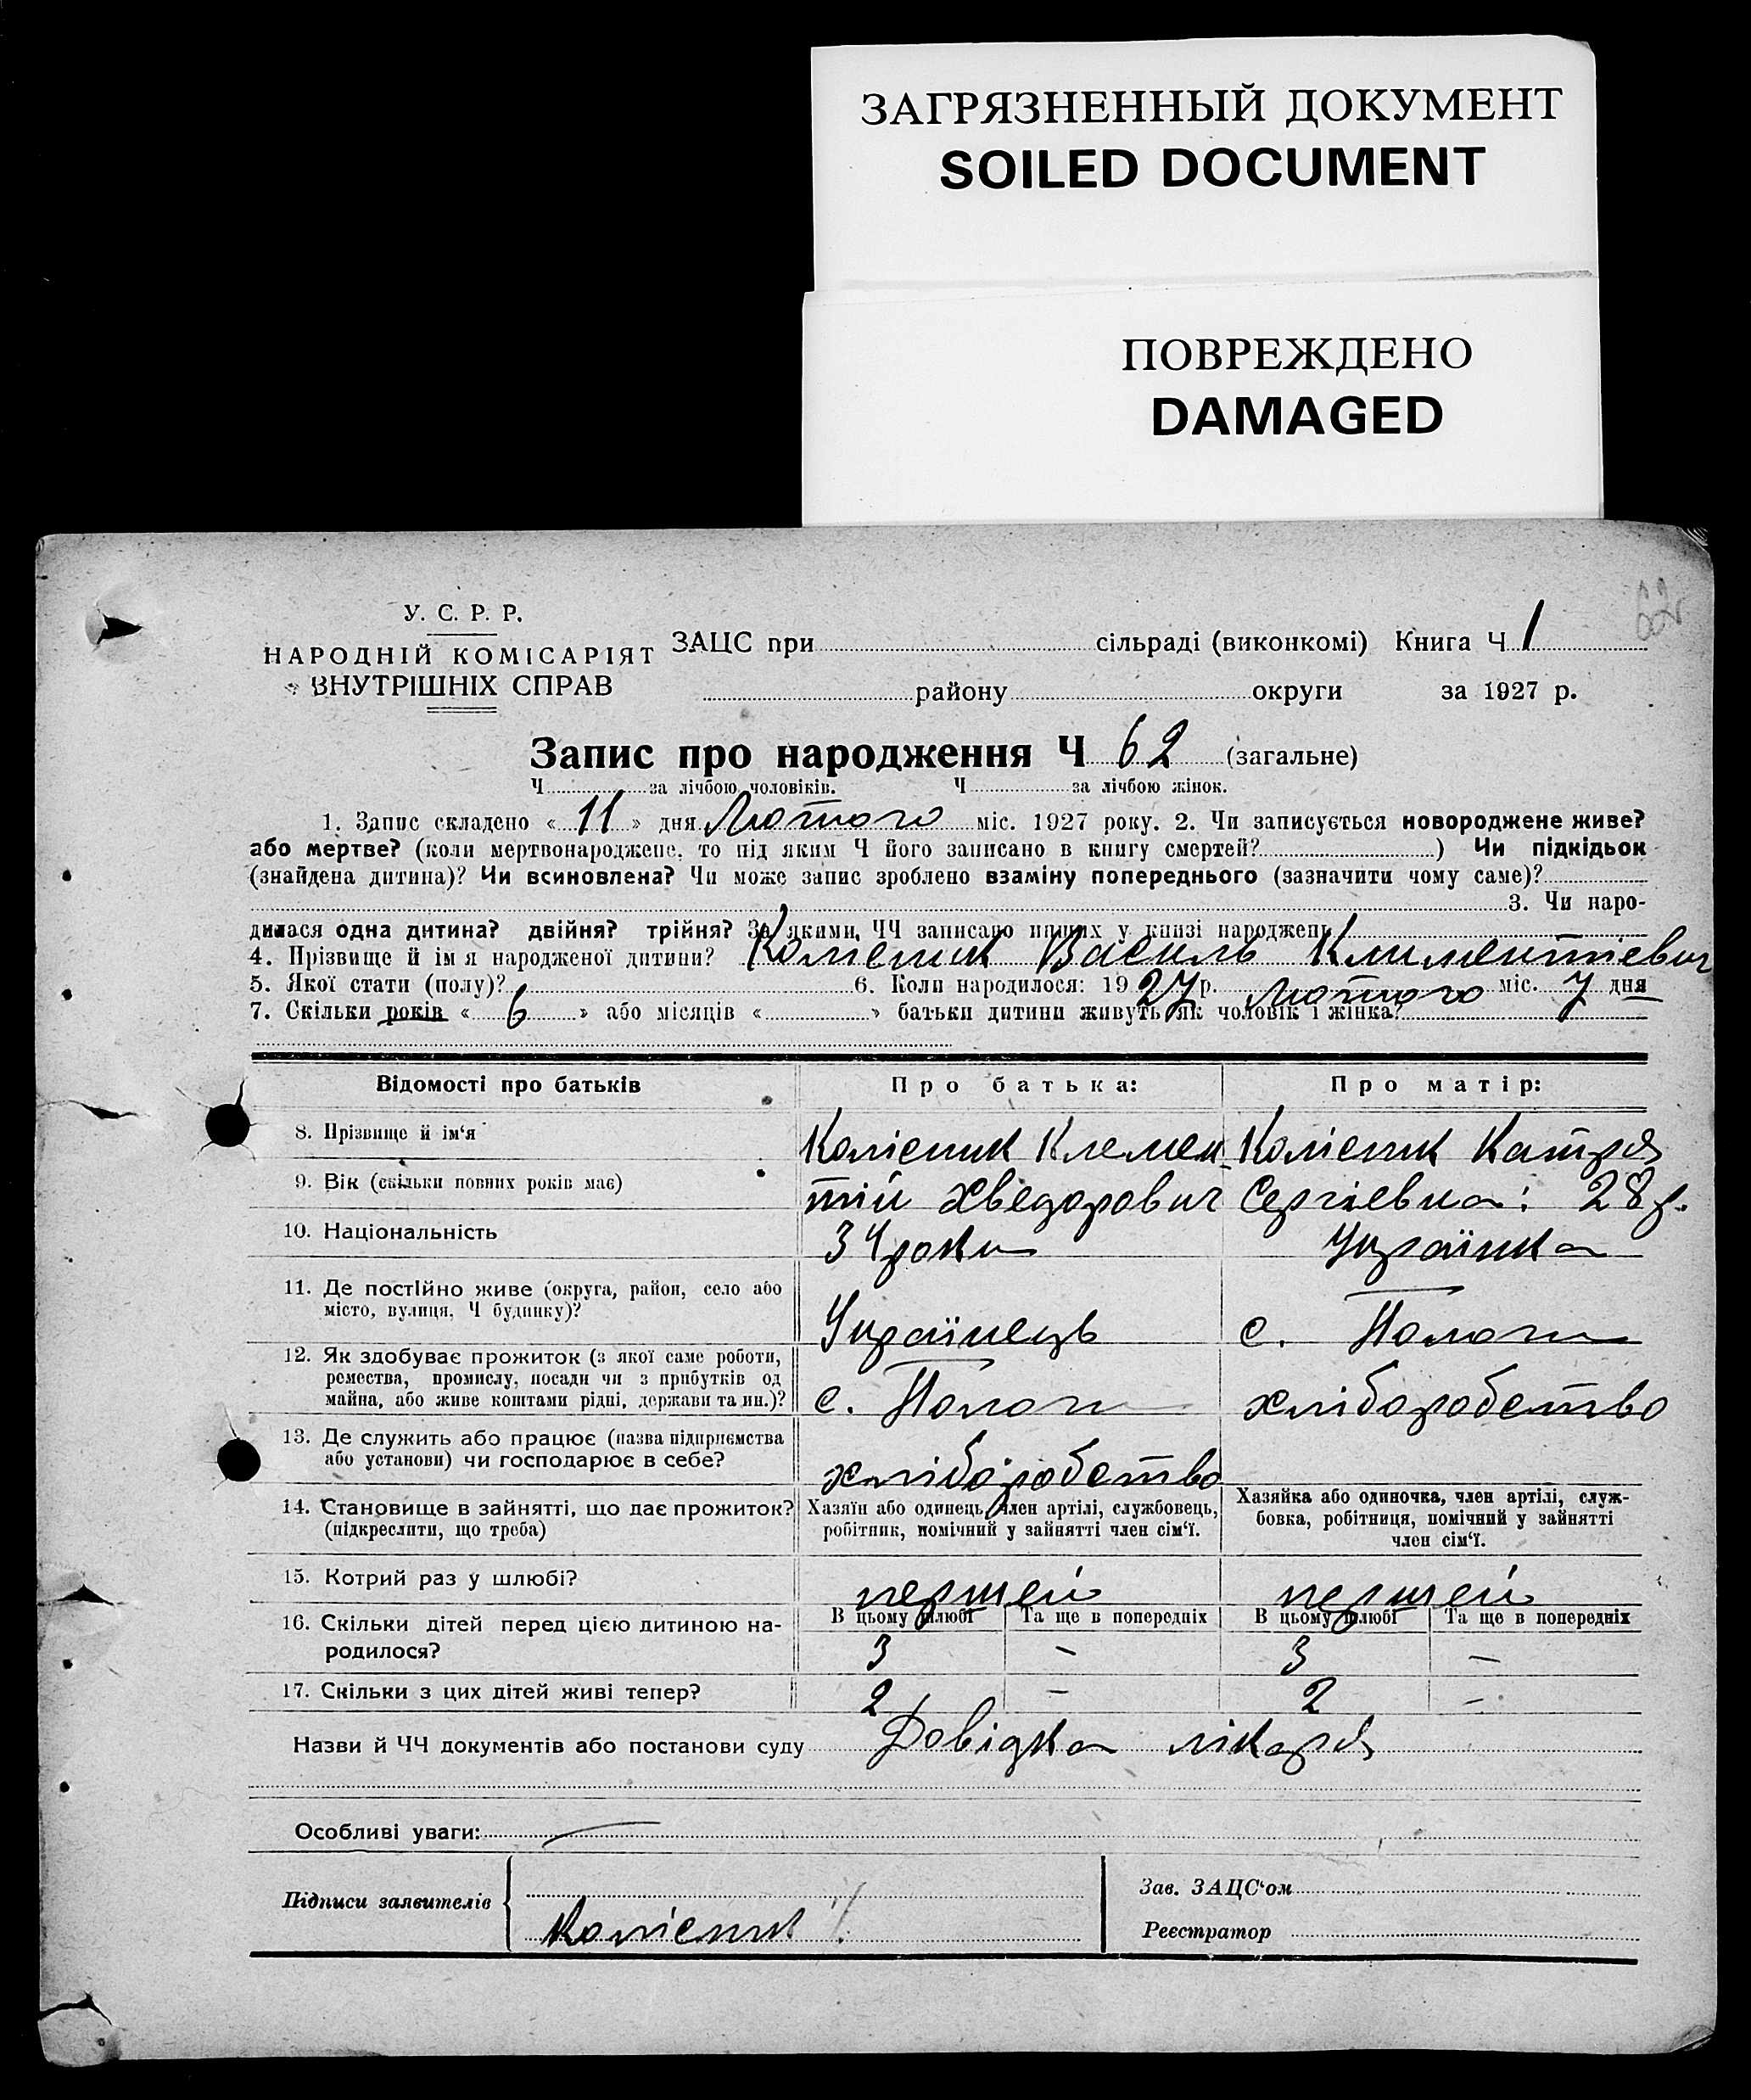 ЗАГРЯЗНЕННЫЙ ДОКУМЕНТ
SOILED DOCUMENT
ПОВРЕЖДЕНО
DAMAGED
62
У. С. Р. Р.
НАРОДНІЙ КОМІСАРІЯТ
ВНУТРІШНІХ СПРАВ
ЗАЦС при сільраді (виконкомі) Книга Ч 1
району округи за 1927 р.
Запис про народження Ч 62 (загальне)
Ч за лічбою чоловіків. Ч за лічбою жінок.
1. Запис складено « 11 » дня Лютого міс. 1927 року. 2. Чи записується новороджене живе?
або мертве? (коли мертвонароджене, то під яким Ч його записано в книгу смертей? ) Чи підкідьок
(знайдена дитина)? Чи всиновлена? Чи може запис зроблено взаміну попереднього (зазначити чому саме)?
3. Чи наро-
дилася одна дитина? двійня? трійня? За якими ЧЧ записано инших у книзі народжень
4. Прізвище й ім я народженої дитини? Колісник Василь Климентіевич
5. Якої стати (полу)? 6. Коли народилося: 1927 р. Лютого міс. 7 дня
7. Скільки років « 6 » або місяців « » батьки дитини живуть як чоловік і жінка?
Відомості про батьків Про батька: Про матір:
8. Прізвище й ім'я Колісник Клемен Колісник Катря
9. Вік (скільки повних років має) тій Хведорович Сергіевна: 28 р.
10. Національність 34 роки Українка
11. Де постійно живе (округа, район, село або
місто, вулиця, Ч будинку)? Українець с. Пологи
12. Як здобуває прожиток (з якої саме роботи,
ремества, промислу, посади чи з прибутків од
майна, або живе коштами рідні, держави та ин.)? с. Пологи хліборобство
13. Де служить або працює (назва підприємства
або установи) чи господарює в себе? хліборобство
14. Становище в зайнятті, що дає прожиток?
(підкреслити, що треба)
Хазяїн або одинець, член артілі, службовець,
робітник, помічний у зайнятті член сім'ї.
Хазяйка або одиночка, член артілі, служ-
бовка, робітниця, помічний у зайнятті
член сім'ї.
15. Котрий раз у шлюбі? першей першей
В цьому шлюбі Та ще в попередніх В цьому шлюбі Та ще в попередніх
16. Скільки дітей перед цією дитиною на-
родилося? 3 – 3 –
17. Скільки з цих дітей живі тепер? 2 – 2 –
Назви й ЧЧ документів або постанови суду Довідка лікаря
Особливі уваги:
Підписи заявителів
Колісник
Зав. ЗАЦС'ом
Реєстратор